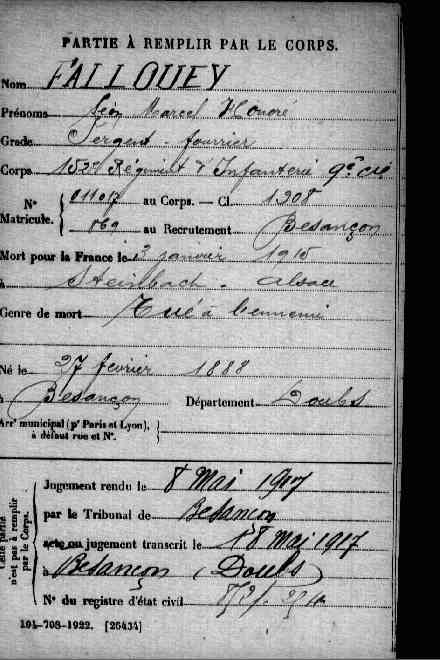 PARTIE À REMPLIR PAR LE CORPS.
Nom FALLOUEY
Prénoms Léon Marcel Honoré
Grade Sergent-fourrier
Corps 152e Régiment d'Infanterie 9e Cie
Nº Matricule. 011017 au Corps. — Cl. 1908
069 au Recrutement Besançon
Mort pour la France le 3 janvier 1915
à Steinbach - Alsace
Genre de mort Tué à l'ennemi
Né le 27 février 1888
à Besançon Département Doubs
Arrt municipal (pr Paris et Lyon), à défaut rue et Nº.
Cette partie n'est pas à remplir par le Corps.
Jugement rendu le 8 Mai 1917
par le Tribunal de Besançon
acte ou jugement transcrit le 18 Mai 1917
à Besançon (Doubs)
Nº du registre d'état civil
194-708-1922. [26434]